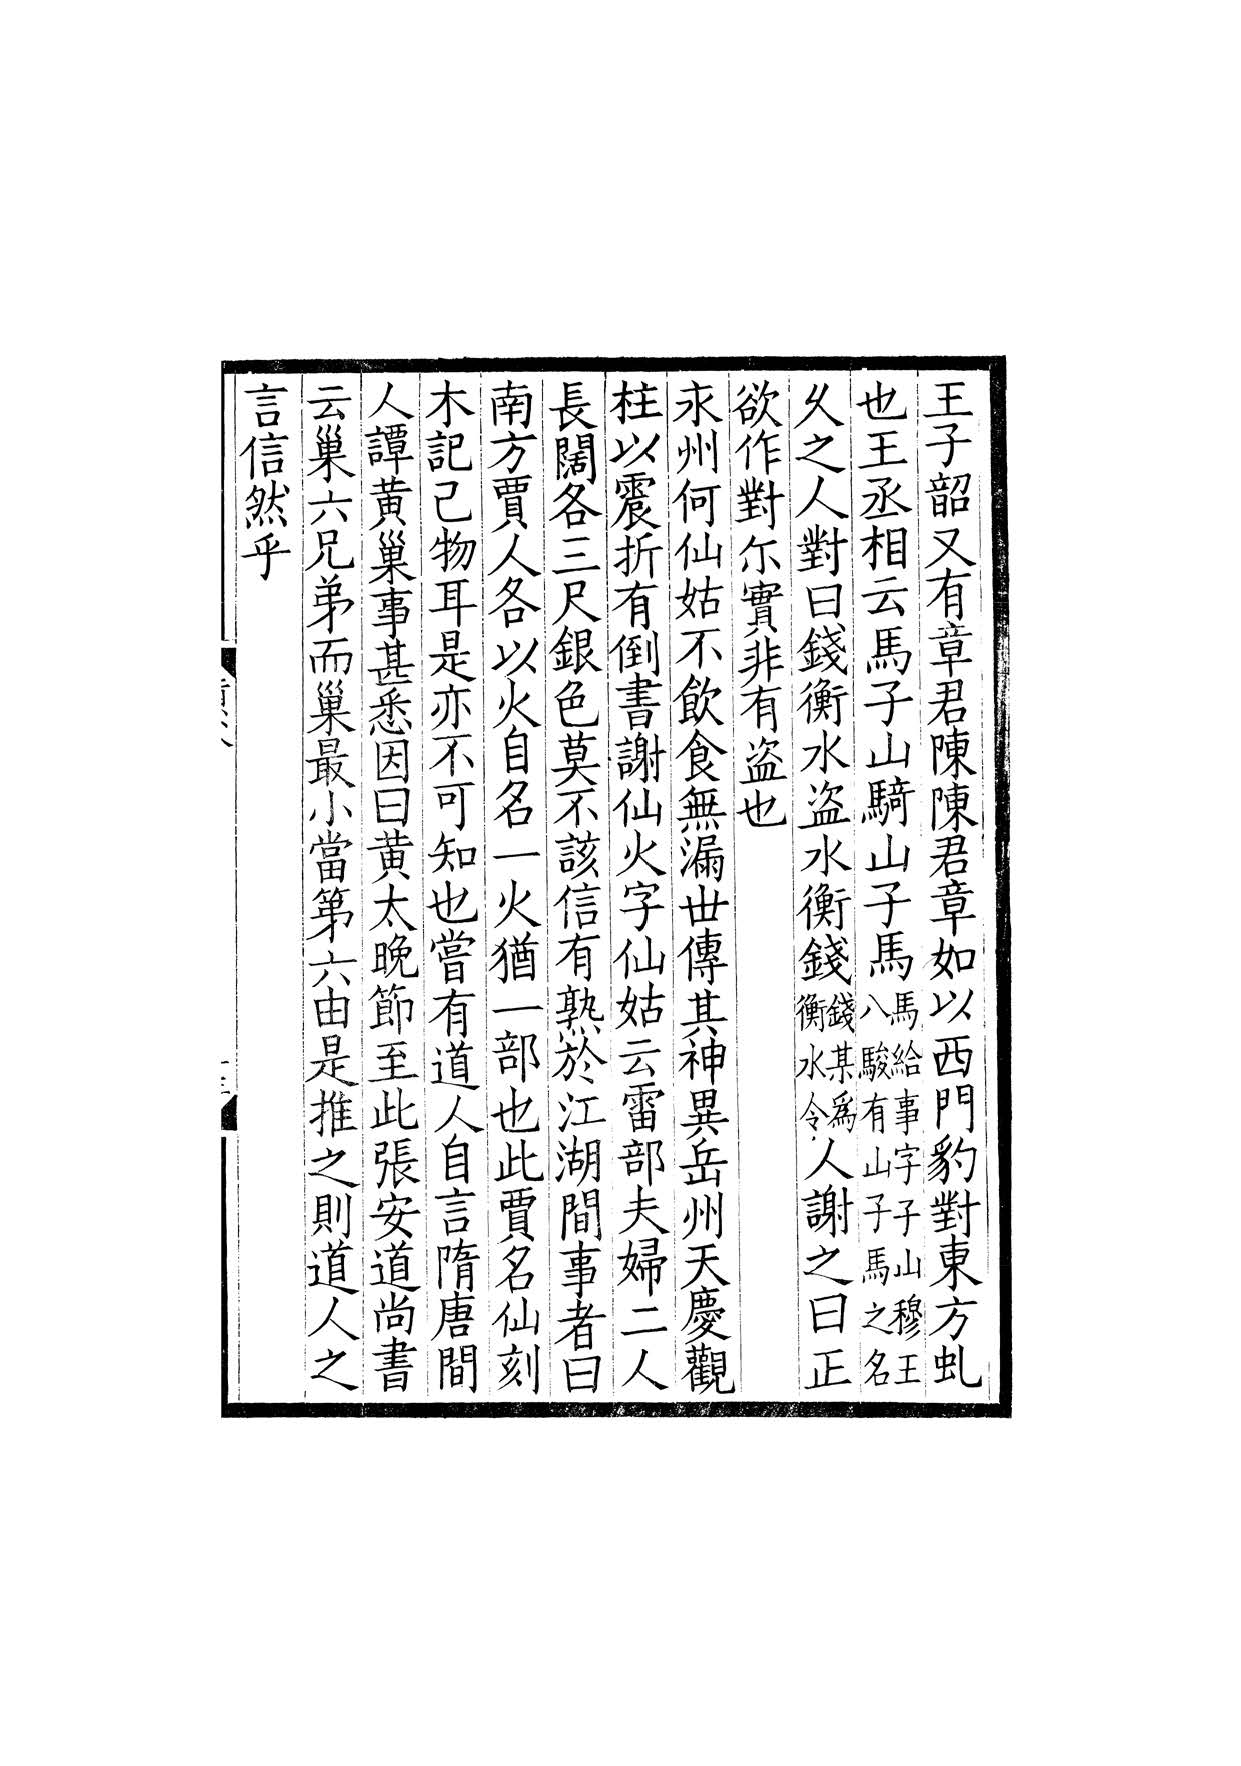 王子韶又有章君陳陳君章如以西門豹對東方虬
也王丞相云馬子山騎山子馬馬給事字子山穆王八駿有山子馬之名
久之人對曰錢衡水盜水衡錢錢某爲衡水令人謝之曰正
欲作對尓實非有盜也
永州何仙姑不飲食無漏世傳其神異岳州天慶觀
柱以震折有倒書謝仙火字仙姑云雷部夫婦二人
長闊各三尺銀色莫不該信有熟於江湖間事者曰
南方賈人各以火自名一火猶一部也此賈名仙刻
木記己物耳是亦不可知也嘗有道人自言隋唐間
人譚黄巢事甚悉因曰黄太晚節至此張安道尚書
云巢六兄弟而巢最小當第六由是推之則道人之
言信然乎